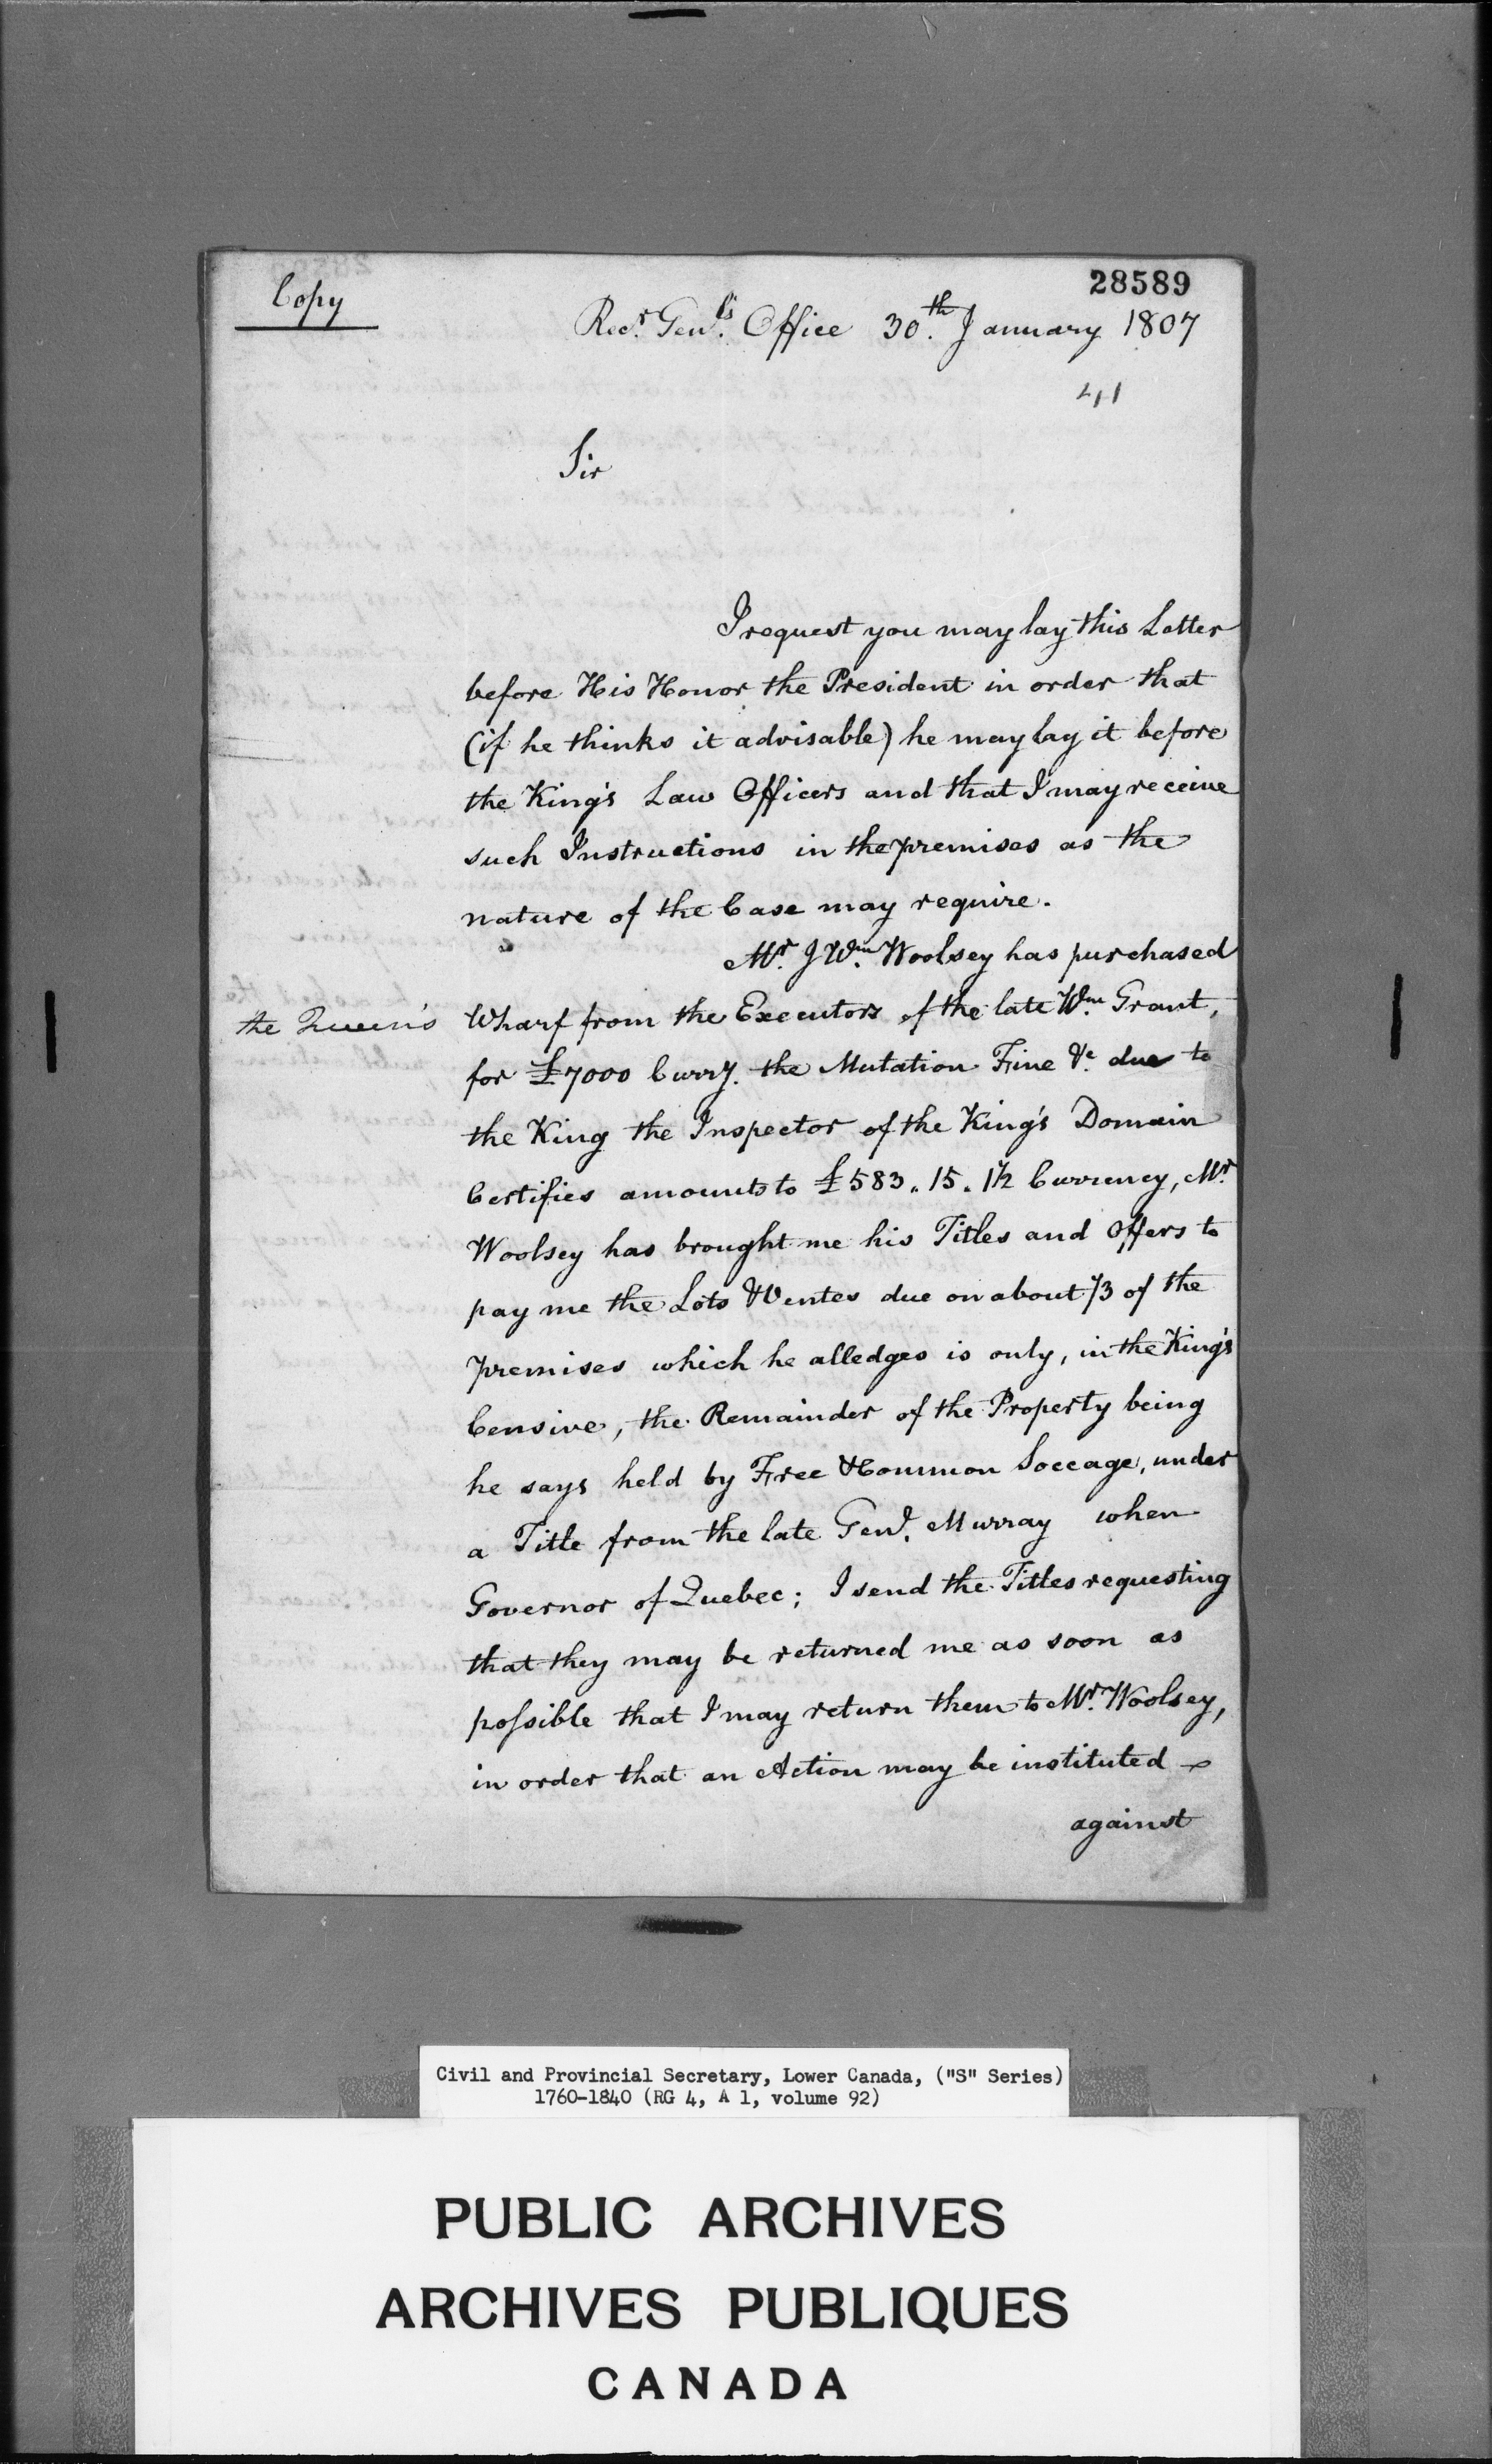 Copy
28589
Recr. Genls. Office 30th. January 1807
411
Sir
I request you may lay this Letter
before His Honor the President in order that
(if he thinks it advisable) he may lay it before
the King's Law Officers and that I may receive
such Instructions in the premises as the
nature of the Case may require.
Mr. J Wm. Woolsey has purchased
the Queen's Wharf from the Executors of the late Wm. Grant,
for £7000 Curry. the Mutation Fine &c. due to
the King the Inspector of the King's Domain
Certifies amounts to £583. 15. 1½ Currency, Mr.
Woolsey has brought me his Titles and Offers to
pay me the Lots & Ventes due on about ⅓ of the
premises which he alledges is only, in the King's
Censive, the Remainder of the Property being
he says held by Free & Common Soccage, under
a Title from the late Genl. Murray when
Governor of Quebec; I send the Titles requesting
that they may be returned me as soon as
possible that I may return them to Mr. Woolsey,
in order that an Action may be instituted
against
Civil and Provincial Secretary, Lower Canada, ("S" Series)
1760-1840 (RG 4, A 1, volume 92)
PUBLIC ARCHIVES
ARCHIVES PUBLIQUES
CANADA